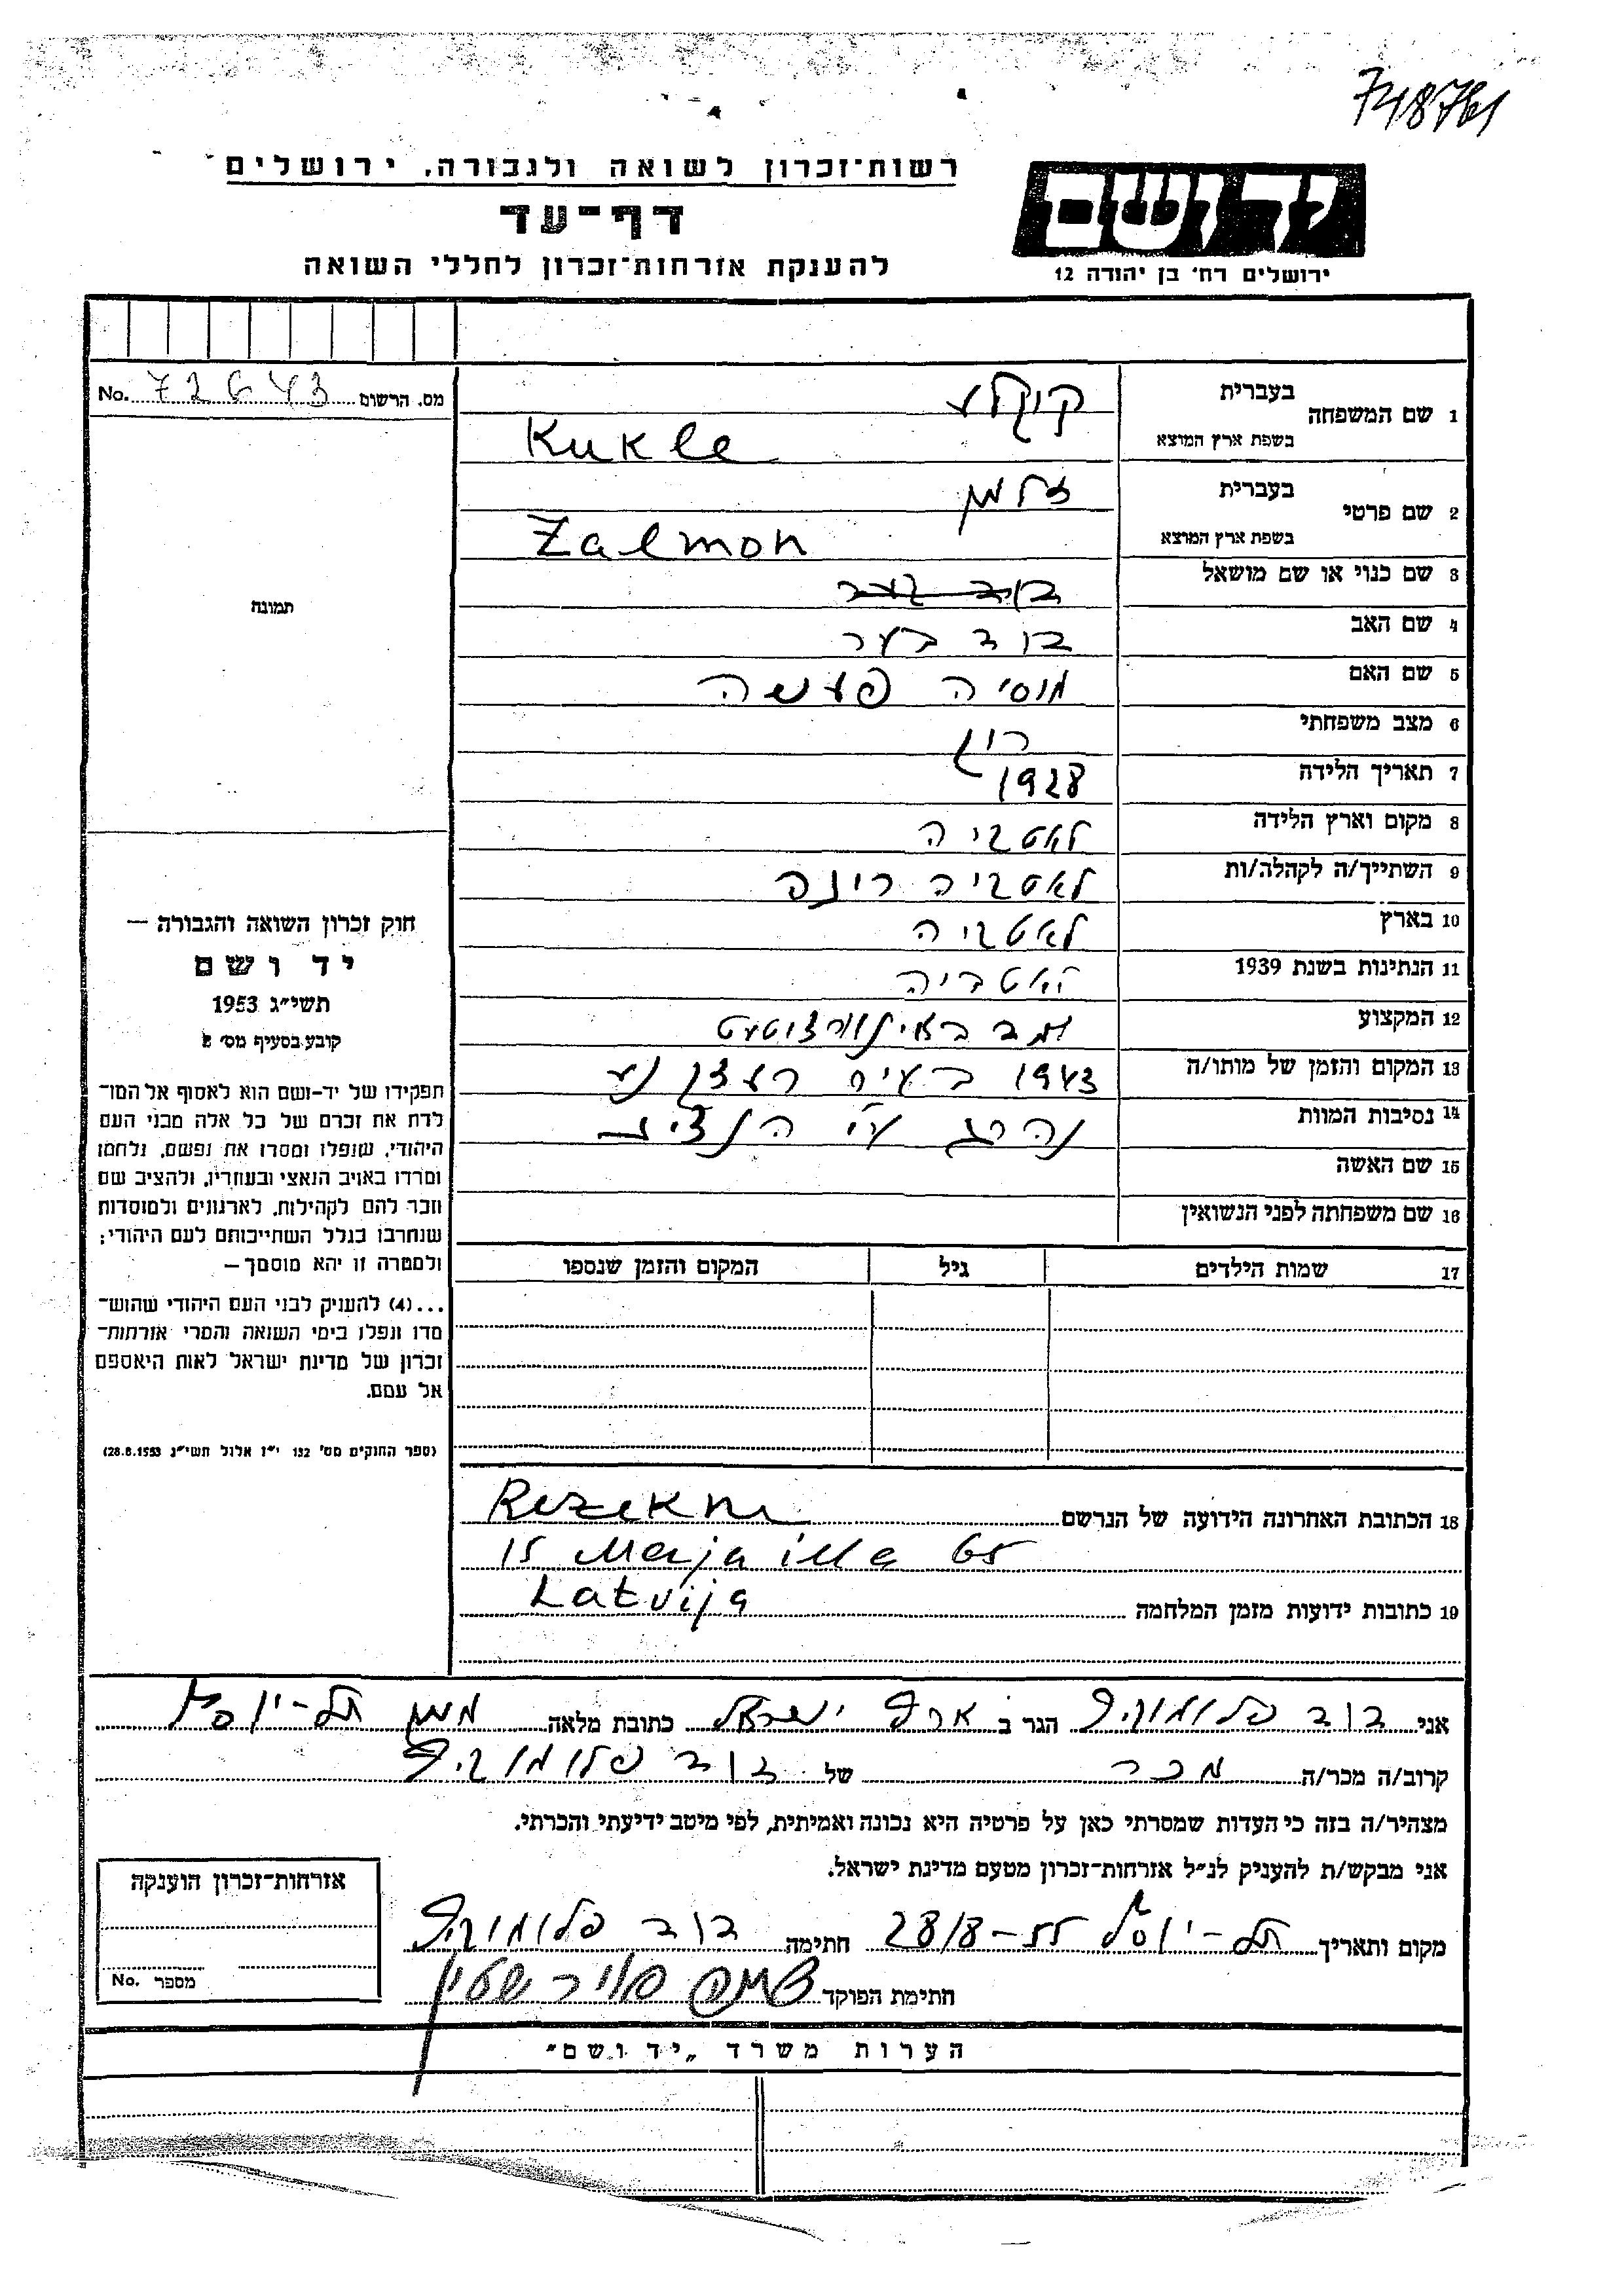 רשות־זכרון לשואה ולגבורה, ירושלים
דף־עד
להענקת אזרחות־זכרון לחללי השואה
יד ושם
ירושלים רח' בן יהודה 12
מס. הרשום 72643 No.
תמונה
חוק זכרון השואה והגבורה —
יד ושם
תשי״ג 1953
קובע בסעיף מס' 2
תפקידו של יד-ושם הוא לאסוף אל המו־
לדת את זכרם של כל אלה מבני העם
היהודי, שנפלו ומסרו את נפשם, נלחמו
ומרדו באויב הנאצי ובעוזריו, ולהציב שם
וזכר להם לקהילות, לארגונים ולמוסדות
שנחרבו בגלל השתייכותם לעם היהודי;
ולמטרה זו יהא מוסמך —
...(4) להעניק לבני העם היהודי שהוש־
מדו ונפלו בימי השואה והמרי אזרחות־
זכרון של מדינת ישראל לאות היאספם
אל עמם.
(ספר החוקים מס' 132 י״ז אלול תשי״ג 28.8.1953)
1 שם המשפחה בעברית קוקלע
בשפת ארץ המוצא Kukle
2 שם פרטי בעברית זלמן
בשפת ארץ המוצא Zalmon
3 שם כנוי או שם מושאל
4 שם האב דוד בער
5 שם האם מוסיה פעשה
6 מצב משפחתי רוק
7 תאריך הלידה 1928
8 מקום וארץ הלידה לאטביה
9 השתייך/ה לקהלה/ות לאטביה
10 בארץ לאטביה
11 הנתינות בשנת 1939 לאטביה
12 המקצוע
13 המקום והזמן של מותו/ה 1943
14 נסיבות המוות נהרג ע״י הנצים
15 שם האשה
16 שם משפחתה לפני הנשואין
17 שמות הילדים גיל המקום והזמן שנספו
18 הכתובת האחרונה הידועה של הנרשם Rezekne
15 Maja iela 65
19 כתובות ידועות מזמן המלחמה Latvija
אני דוד הגר ב ארץ ישראל כתובת מלאה תל-יוסף
קרוב/ה מכר/ה מכר של דוד
מצהיר/ה בזה כי העדות שמסרתי כאן על פרטיה היא נכונה ואמיתית, לפי מיטב ידיעתי והכרתי.
אני מבקש/ת להעניק לנ״ל אזרחות-זכרון מטעם מדינת ישראל.
מקום ותאריך תל-יוסף 28/8-55 חתימה דוד
חתימת הפוקד
אזרחות-זכרון הוענקה
מספר No.
הערות משרד „יד ושם"